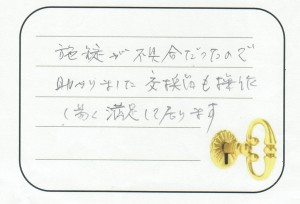 施錠が不具合だったので
助かりました 交換品も操作
し易く満足して居ります